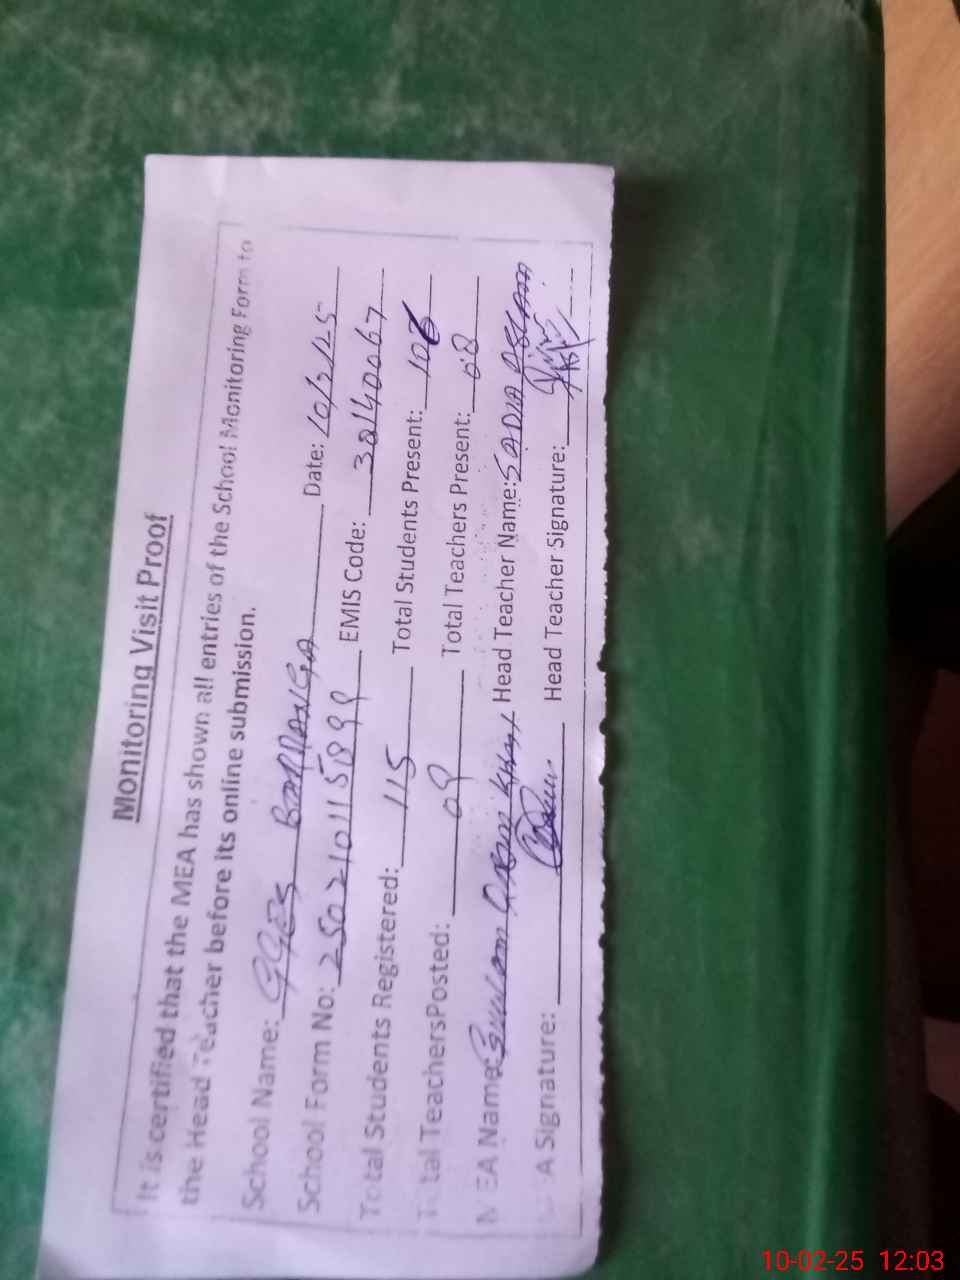 Monitoring Visit Proof
It is certified that the MEA has shown all entries of the School Monitoring Form to
the Head Teacher before its online submission.
School Name: GGES BARRANGA Date: 10/2/25
School Form No: 250210115899 EMIS Code: 38140067
Total Students Registered: 115 Total Students Present: 106
Total TeachersPosted: 09 Total Teachers Present: 08
MEA Name: Ghulam Khan Head Teacher Name: SADIA ASLAM
MEA Signature: Head Teacher Signature:
10-02-25 12:03